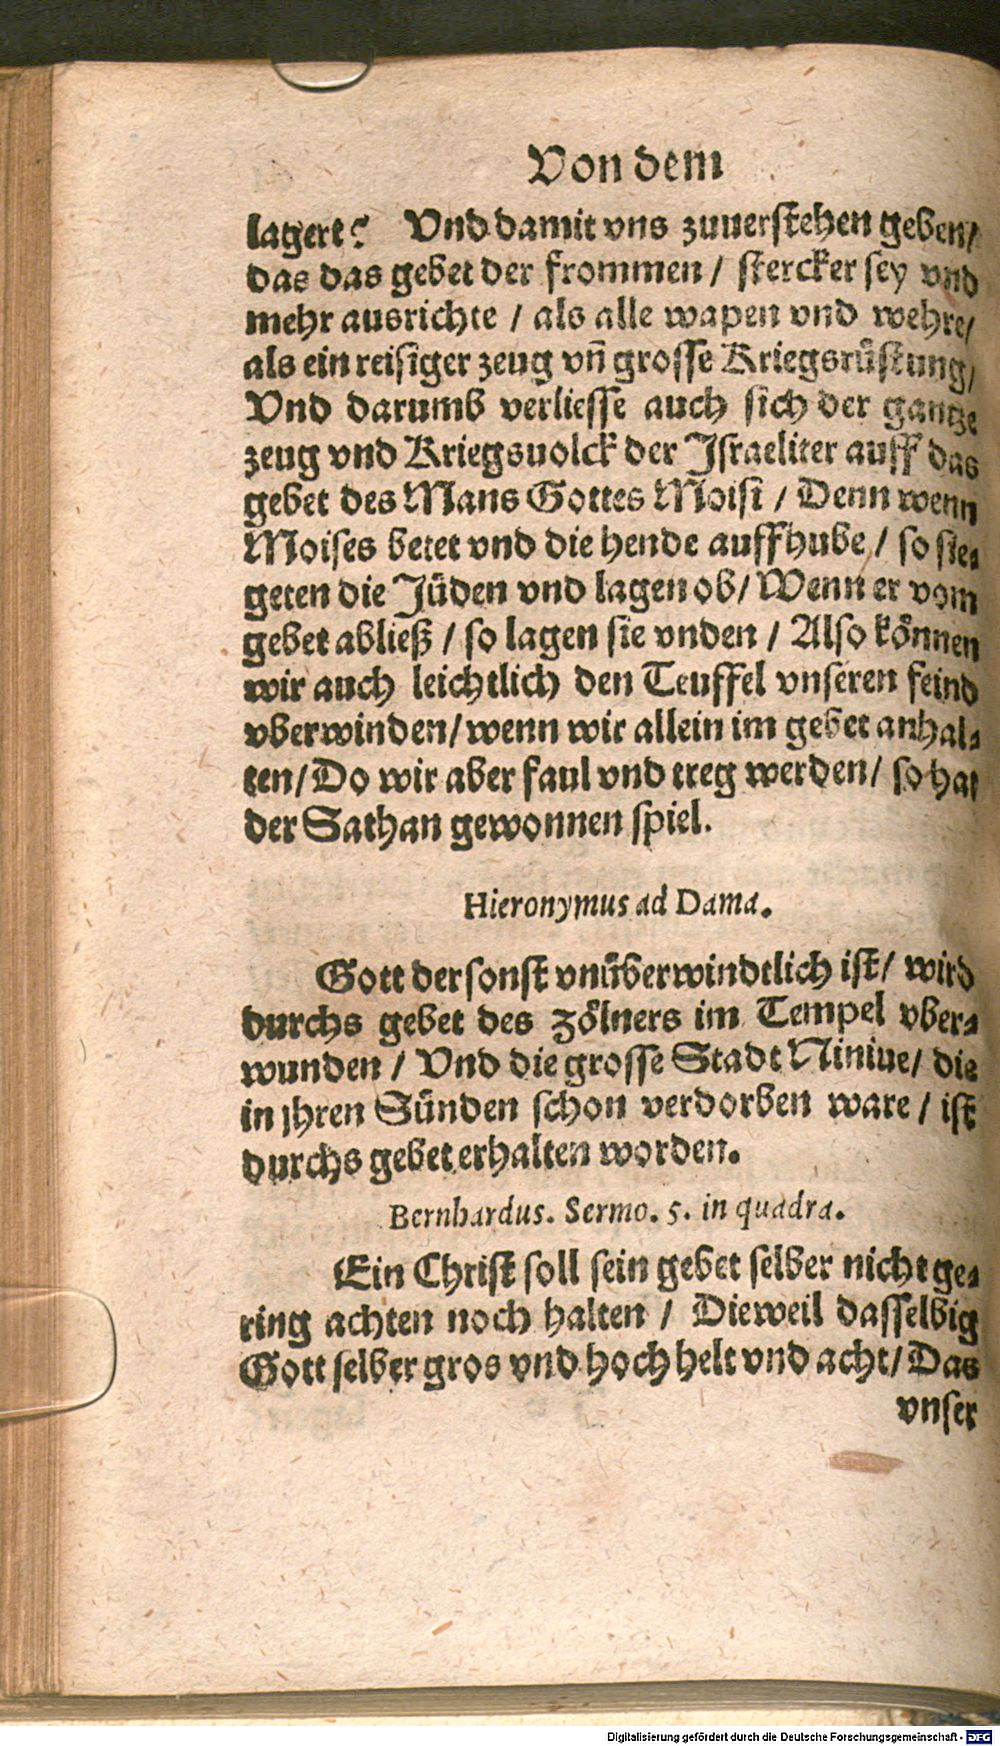 Von dem
lagert? Vnd damit vns zuuerstehen geben/
das das gebet der frommen / stercker sey vnd
mehr ausrichte / als alle wapen vnd wehre/
als ein reisiger zeug vn̄ grosse Kriegsrüstung/
Vnd darumb verliesse auch sich der gantze
zeug vnd Kriegsuolck der Israeliter auff das
gebet des Mans Gottes Moisi / Denn wenn
Moises betet vnd die hende auffhube / so sie⸗
geten die Jüden vnd lagen ob/ Wenn er vom
gebet abließ / so lagen sie vnden / Also können
wir auch leichtlich den Teuffel vnseren feind
vberwinden/ wenn wir allein im gebet anhal⸗
ten/ Do wir aber faul vnd treg werden/ so hat
der Sathan gewonnen spiel.
Hieronymus ad Dama.
Gott der sonst vnüberwindtlich ist/ wird
durchs gebet des zölners im Tempel vber⸗
wunden / Vnd die grosse Stadt Niniue/ die
in jhren Sünden schon verdorben ware / ist
durchs gebet erhalten worden.
Bernhardus. Sermo. 5. in quadra.
Ein Christ soll sein gebet selber nicht ge⸗
ring achten noch halten / Dieweil dasselbig
Gott selber gros vnd hoch helt vnd acht/ Das
vnser
Digitalisierung gefördert durch die Deutsche Forschungsgemeinschaft - DFG